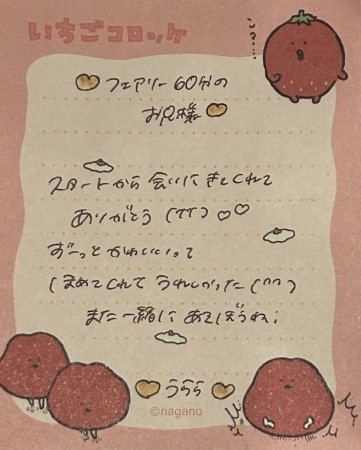 いちごコロッケ
フェアリー60分の
お兄様
スタートから会いにきてくれて
ありがとう(TTT)♡♡
ずーっとかわいいって
ほめてくれてうれしかった(∩∩)
また一緒にあそぼうね;
うらら
©nagano